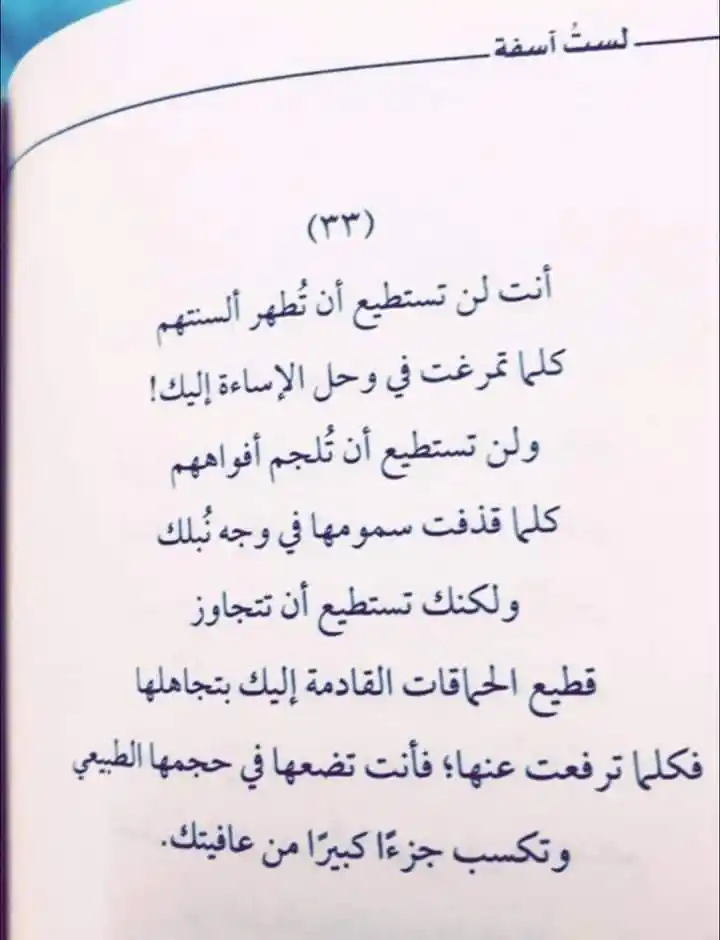 لستُ آسفة
(٣٣)
أنت لن تستطيع أن تُطهر ألسنتهم
كلما تمرغت في وحل الإساءة إليك!
ولن تستطيع أن تُلجم أفواههم
كلما قذفت سمومها في وجه نُبلك
ولكنك تستطيع أن تتجاوز
قطيع الحماقات القادمة إليك بتجاهلها
فكلما ترفعت عنها؛ فأنت تضعها في حجمها الطبيعي
وتكسب جزءًا كبيرًا من عافيتك.